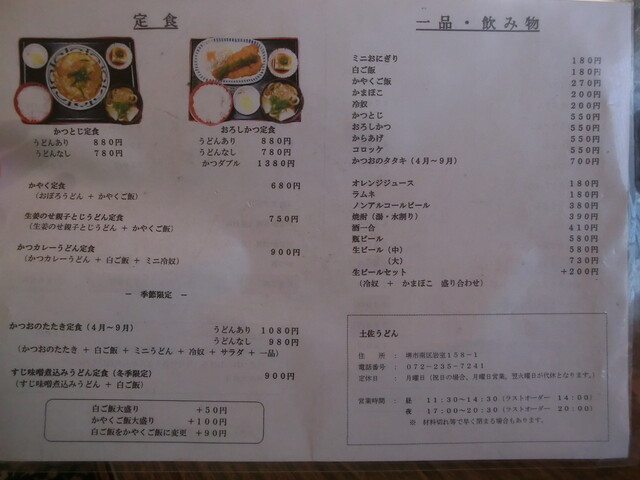 定食
かつとじ定食
うどんあり 880円
うどんなし 780円
おろしかつ定食
うどんあり 880円
うどんなし 780円
かつダブル 1380円
かやく定食 680円
(おぼろうどん + かやくご飯)
生姜のせ親子とじうどん定食 750円
(生姜のせ親子とじうどん + かやくご飯)
かつカレーうどん定食 900円
(かつカレーうどん + 白ご飯 + ミニ冷奴)
― 季節限定 ―
かつおのたたき定食(4月~9月) うどんあり 1080円
うどんなし 980円
(かつおのたたき + 白ご飯 + ミニうどん + 冷奴 + サラダ + 一品)
すじ味噌煮込みうどん定食(冬季限定) 900円
(すじ味噌煮込みうどん + 白ご飯)
白ご飯大盛り +50円
かやくご飯大盛り +100円
白ご飯をかやくご飯に変更 +90円
一品・飲み物
ミニおにぎり 180円
白ご飯 180円
かやくご飯 270円
かまぼこ 200円
冷奴 200円
かつとじ 550円
おろしかつ 550円
からあげ 550円
コロッケ 550円
かつおのタタキ(4月~9月) 700円
オレンジジュース 180円
ラムネ 180円
ノンアルコールビール 380円
焼酎(湯・水割り) 390円
酒一合 410円
瓶ビール 580円
生ビール(中) 580円
(大) 730円
生ビールセット +200円
(冷奴 + かまぼこ 盛り合わせ)
土佐うどん
住所 : 堺市南区岩室158-1
電話番号 : 072-235-7241
定休日 : 月曜日(祝日の場合、月曜日営業、翌火曜日が代休となります。)
営業時間 : 昼 11:30~14:30(ラストオーダー 14:00)
夜 17:00~20:30(ラストオーダー 20:00)
※ 材料切れ等で早く閉まる場合もあります。